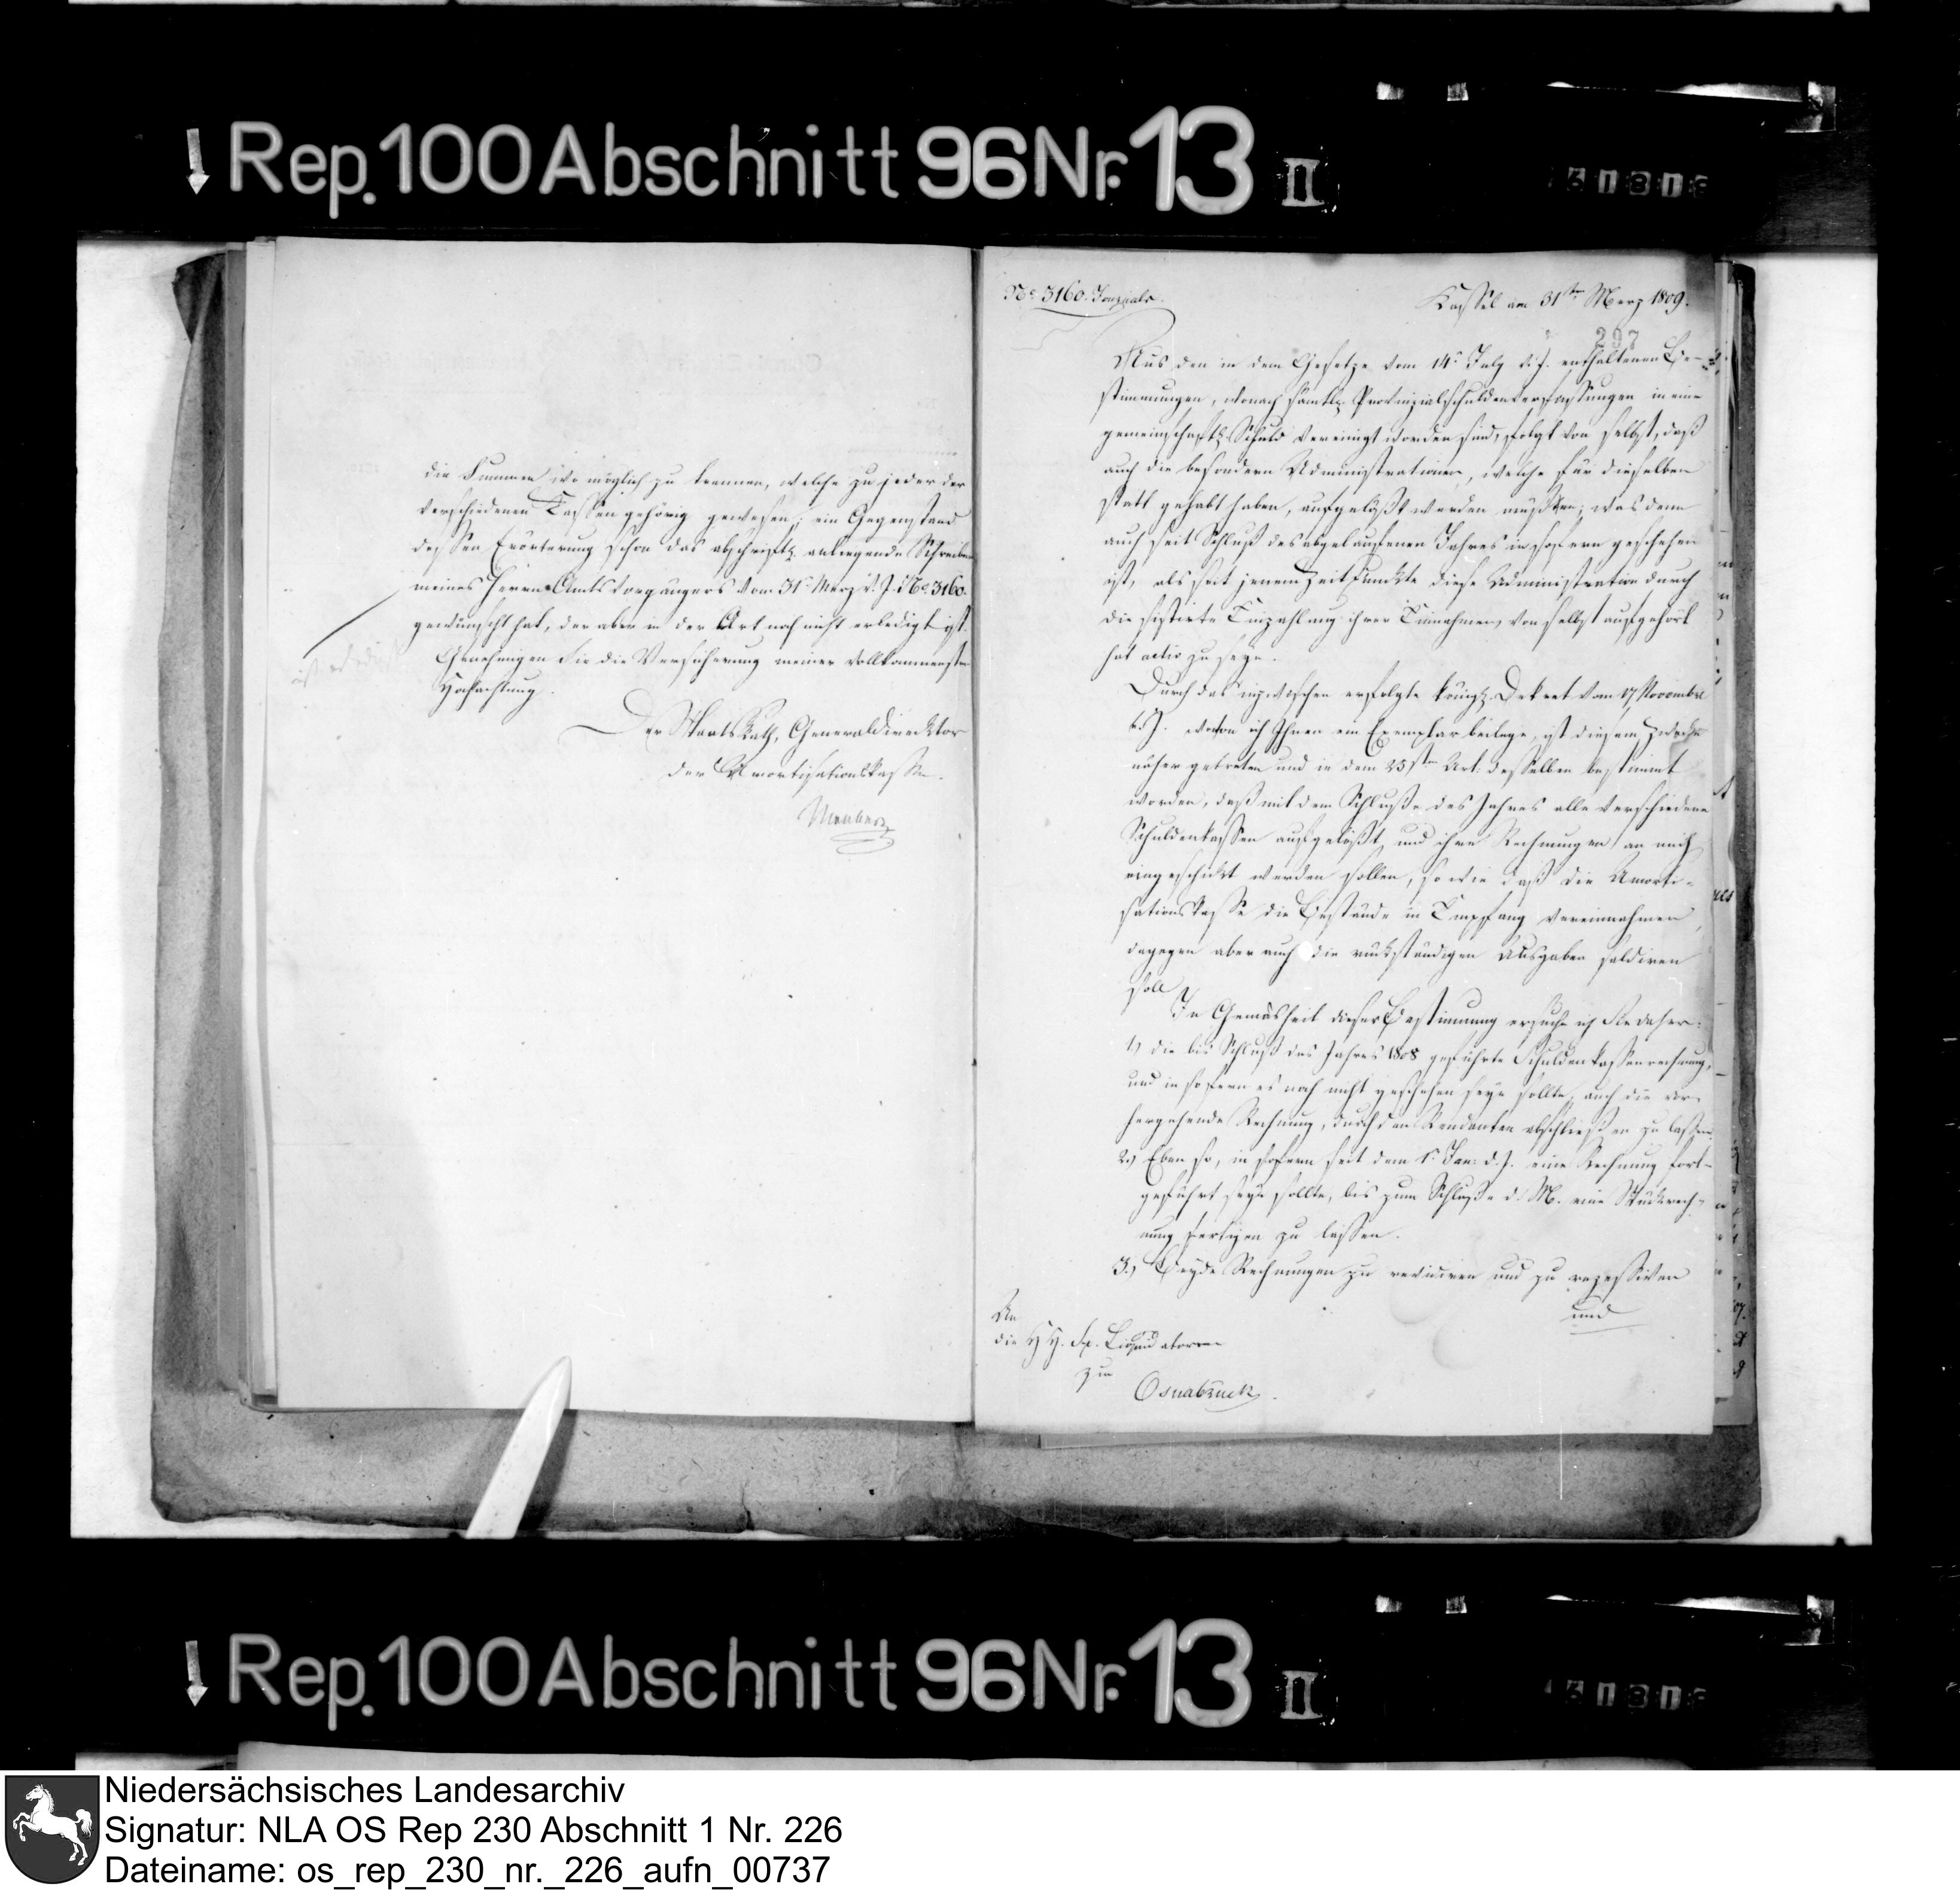 Rep. 100 Abschnitt 96 Nr. 13 II
61818
die Summen wo möglich zu trennen, welche zu jeder der
verschiedenen Cassen gehörig gewesen; ein Gegenstand
dessen Erörterung schon das abschriftl. anliegende Schreiben
meines Herrn Amtsvorgängers vom 31n Merz v. J. No 3160.
gewünscht hat, der aber in der Art noch nicht erledigt ist.
Genehmigen Sie die Versicherung meiner vollkommensten
Hochachtung.
Der StaatsRath, Generaldirecktor
der Amortisationskasse.
ist erledigt
No 3160.
Kassel am 31ten Merz 1809.
297
Aus den in dem Gesetze vom 14n July v. J. enthaltenen Be-
stimmungen, wonach sämtl. Provinzialschuldenverfassungen in eine
gemeinschaftl. Schuld vereinigt worden sind, folgt von selbst, daß
auch die besondern Administrationen, welche für dieselben
statt gehabt haben, aufgelößt werden müßten; was denn
auch seit Schluß des abgelaufenen Jahres in sofern geschehen
ist, als seit jenem Zeitpunckte diese Administration durch
die sistirte Einzahlung ihrer Einnahmen, von selbst aufgehört
hat activ zu seyn.
Durch das inzwischen erfolgte königl. Dekret vom 17 Novembr
v. J. wovon ich Ihnen ein Exemplar beilege, ist diesem Zwecke
näher getreten und in dem 25sten Art: desselben bestimmt
worden, daß mit dem Schluße des Jahres alle verschiedene
Schuldenkassen aufgelößt, und ihre Rechnungen an mich
eingeschickt werden sollen, so wie daß die Amorti-
sationskasse die Bestände in Empfang vereinnahmen,
dagegen aber auch die rückständigen Ausgaben saldiren
soll
In Gemäsheit dieser Bestimmung ersuche ich Sie daher:
1) die bis Schluß des Jahres 1808 geführte Schuldenkassenrechnung,
und in sofern es noch nicht geschehen seyn sollte, auch die vor-
hergehende Rechnung, durch den Rendanten abschließen zu lassen
2.) Eben so, in sofern seit dem 1n Jan: d. J. eine Rechnung fort-
geführt seyn sollte, bis zum Schluße d. M. eine Stückrech-
nung fertigen zu lassen.
3.) Beyde Rechnungen zu revidiren und zu
und
An
die HH. Liquidatoren
zu
Osnabrück.
Rep. 100 Abschnitt 96 Nr. 13 II
61818
Niedersächsisches Landesarchiv
Signatur: NLA OS Rep 230 Abschnitt 1 Nr. 226
Dateiname: os_rep_230_nr._226_aufn_00737